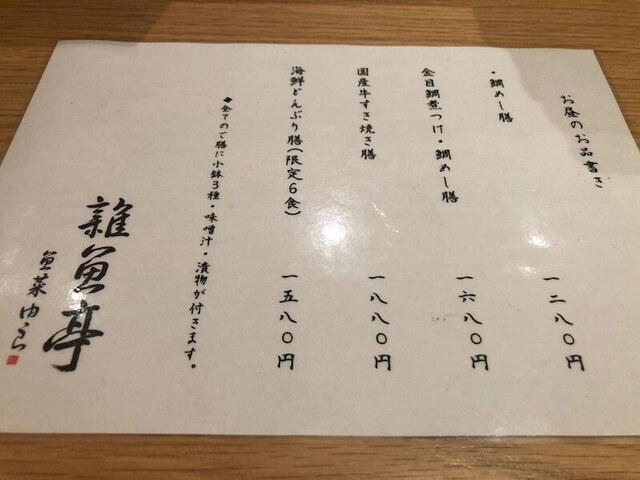 お昼のお品書き
・鯛めし膳 一二八〇円
金目鯛煮つけ・鯛めし膳 一六八〇円
国産牛すき焼き膳 一八八〇円
海鮮どんぶり膳(限定6食) 一五八〇円
◆全てのご膳に小鉢3種・味噌汁・漬物が付きます。
雑魚亭
魚菜ゆらら